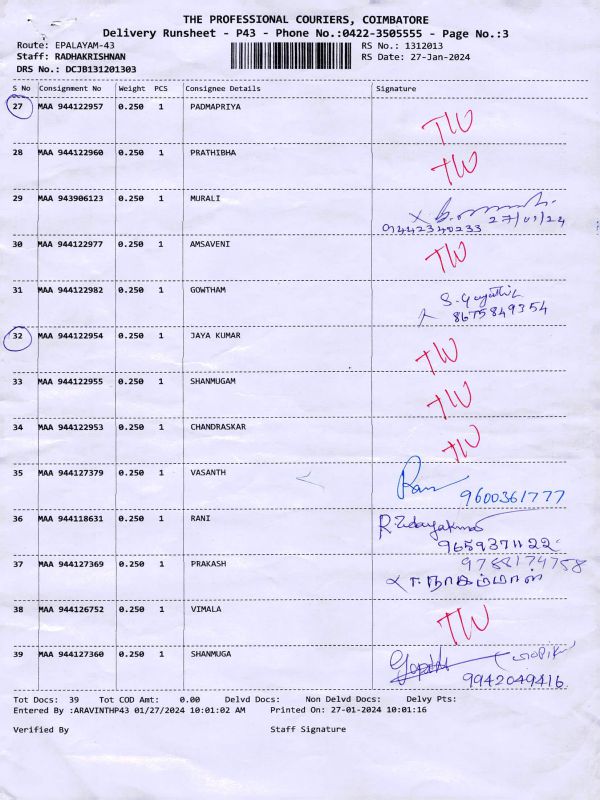 THE PROFESSIONAL COURIERS, COIMBATORE
Delivery Runsheet - P43 - Phone No.:0422-3505555 - Page No.:3
Route: EPALAYAM-43 RS No.: 1312013
Staff: RADHAKRISHNAN RS Date: 27-Jan-2024
DRS No.: DCJB131201303
S No Consignment No Weight PCS Consignee Details Signature
27 MAA 944122957 0.250 1 PADMAPRIYA TW
28 MAA 944122960 0.250 1 PRATHIBHA TW
29 MAA 943906123 0.250 1 MURALI 27/01/24
09442340233
30 MAA 944122977 0.250 1 AMSAVENI TW
31 MAA 944122982 0.250 1 GOWTHAM S. Gayathi
8675849354
32 MAA 944122954 0.250 1 JAYA KUMAR TW
33 MAA 944122955 0.250 1 SHANMUGAM TW
34 MAA 944122953 0.250 1 CHANDRASKAR TW
35 MAA 944127379 0.250 1 VASANTH
9600361777
36 MAA 944118631 0.250 1 RANI R. Udayakumar
9659371122
37 MAA 944127369 0.250 1 PRAKASH 9788174758
நாகம்மாள்
38 MAA 944126752 0.250 1 VIMALA TW
39 MAA 944127360 0.250 1 SHANMUGA
9942049416
Tot Docs: 39 Tot COD Amt: 0.00 Delvd Docs: Non Delvd Docs: Delvy Pts:
Entered By :ARAVINTHP43 01/27/2024 10:01:02 AM Printed On: 27-01-2024 10:01:16
Verified By Staff Signature